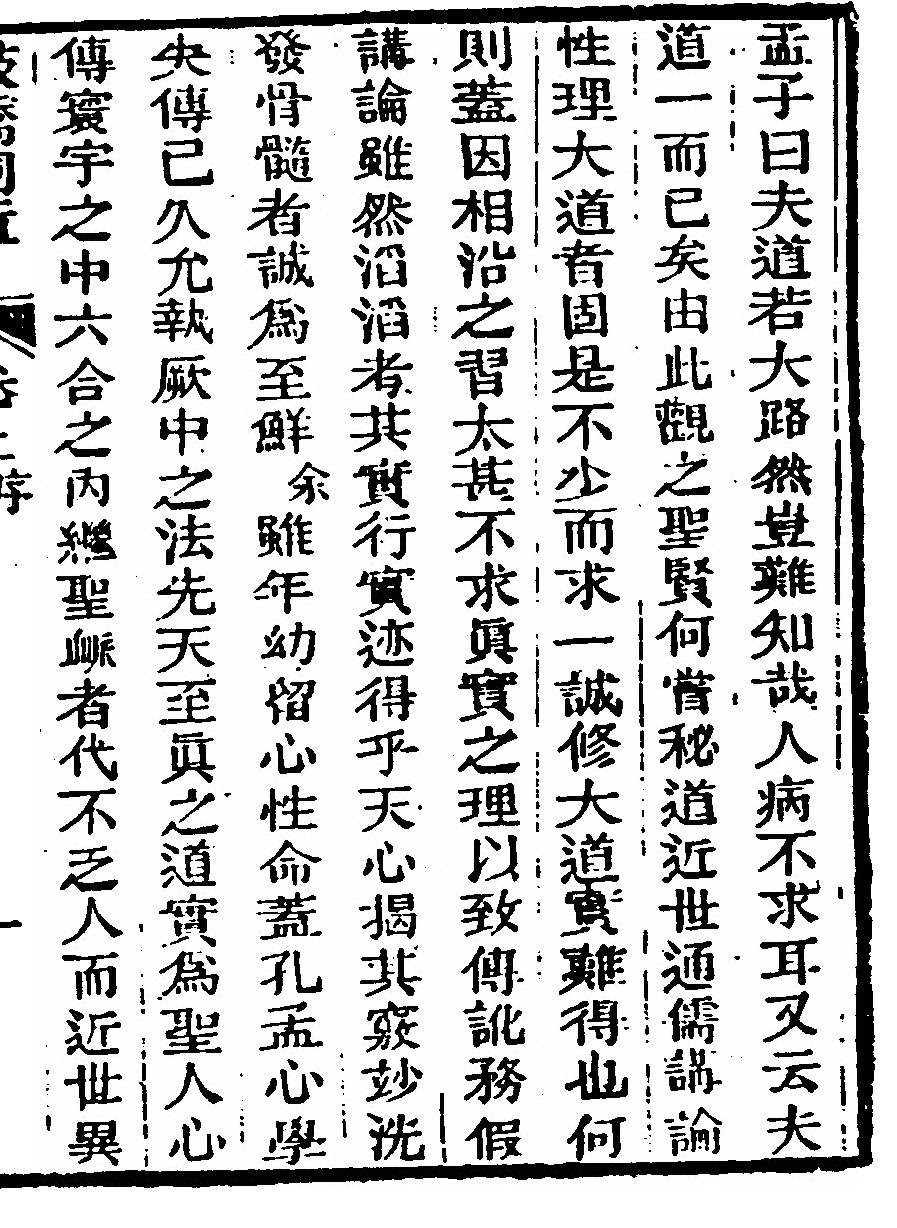 孟子曰夫道若大路然豈難知哉人病不求耳又云夫
道一而已矣由此觀之聖賢何嘗秘道近世通儒講論
性理大道者固是不少而求一誠修大道實難得也何
則蓋因相沿之習太甚不求眞實之理以致傳訛務假
講論雖然滔滔考其實行實迹得乎天心揭其竅妙洗
發骨髓者誠爲至鮮余雖年幼留心性命蓋孔孟心學
失傳已久允執厥中之法先天至眞之道實爲聖人心
傳寰宇之中六合之內繼聖脈者代不乏人而近世異